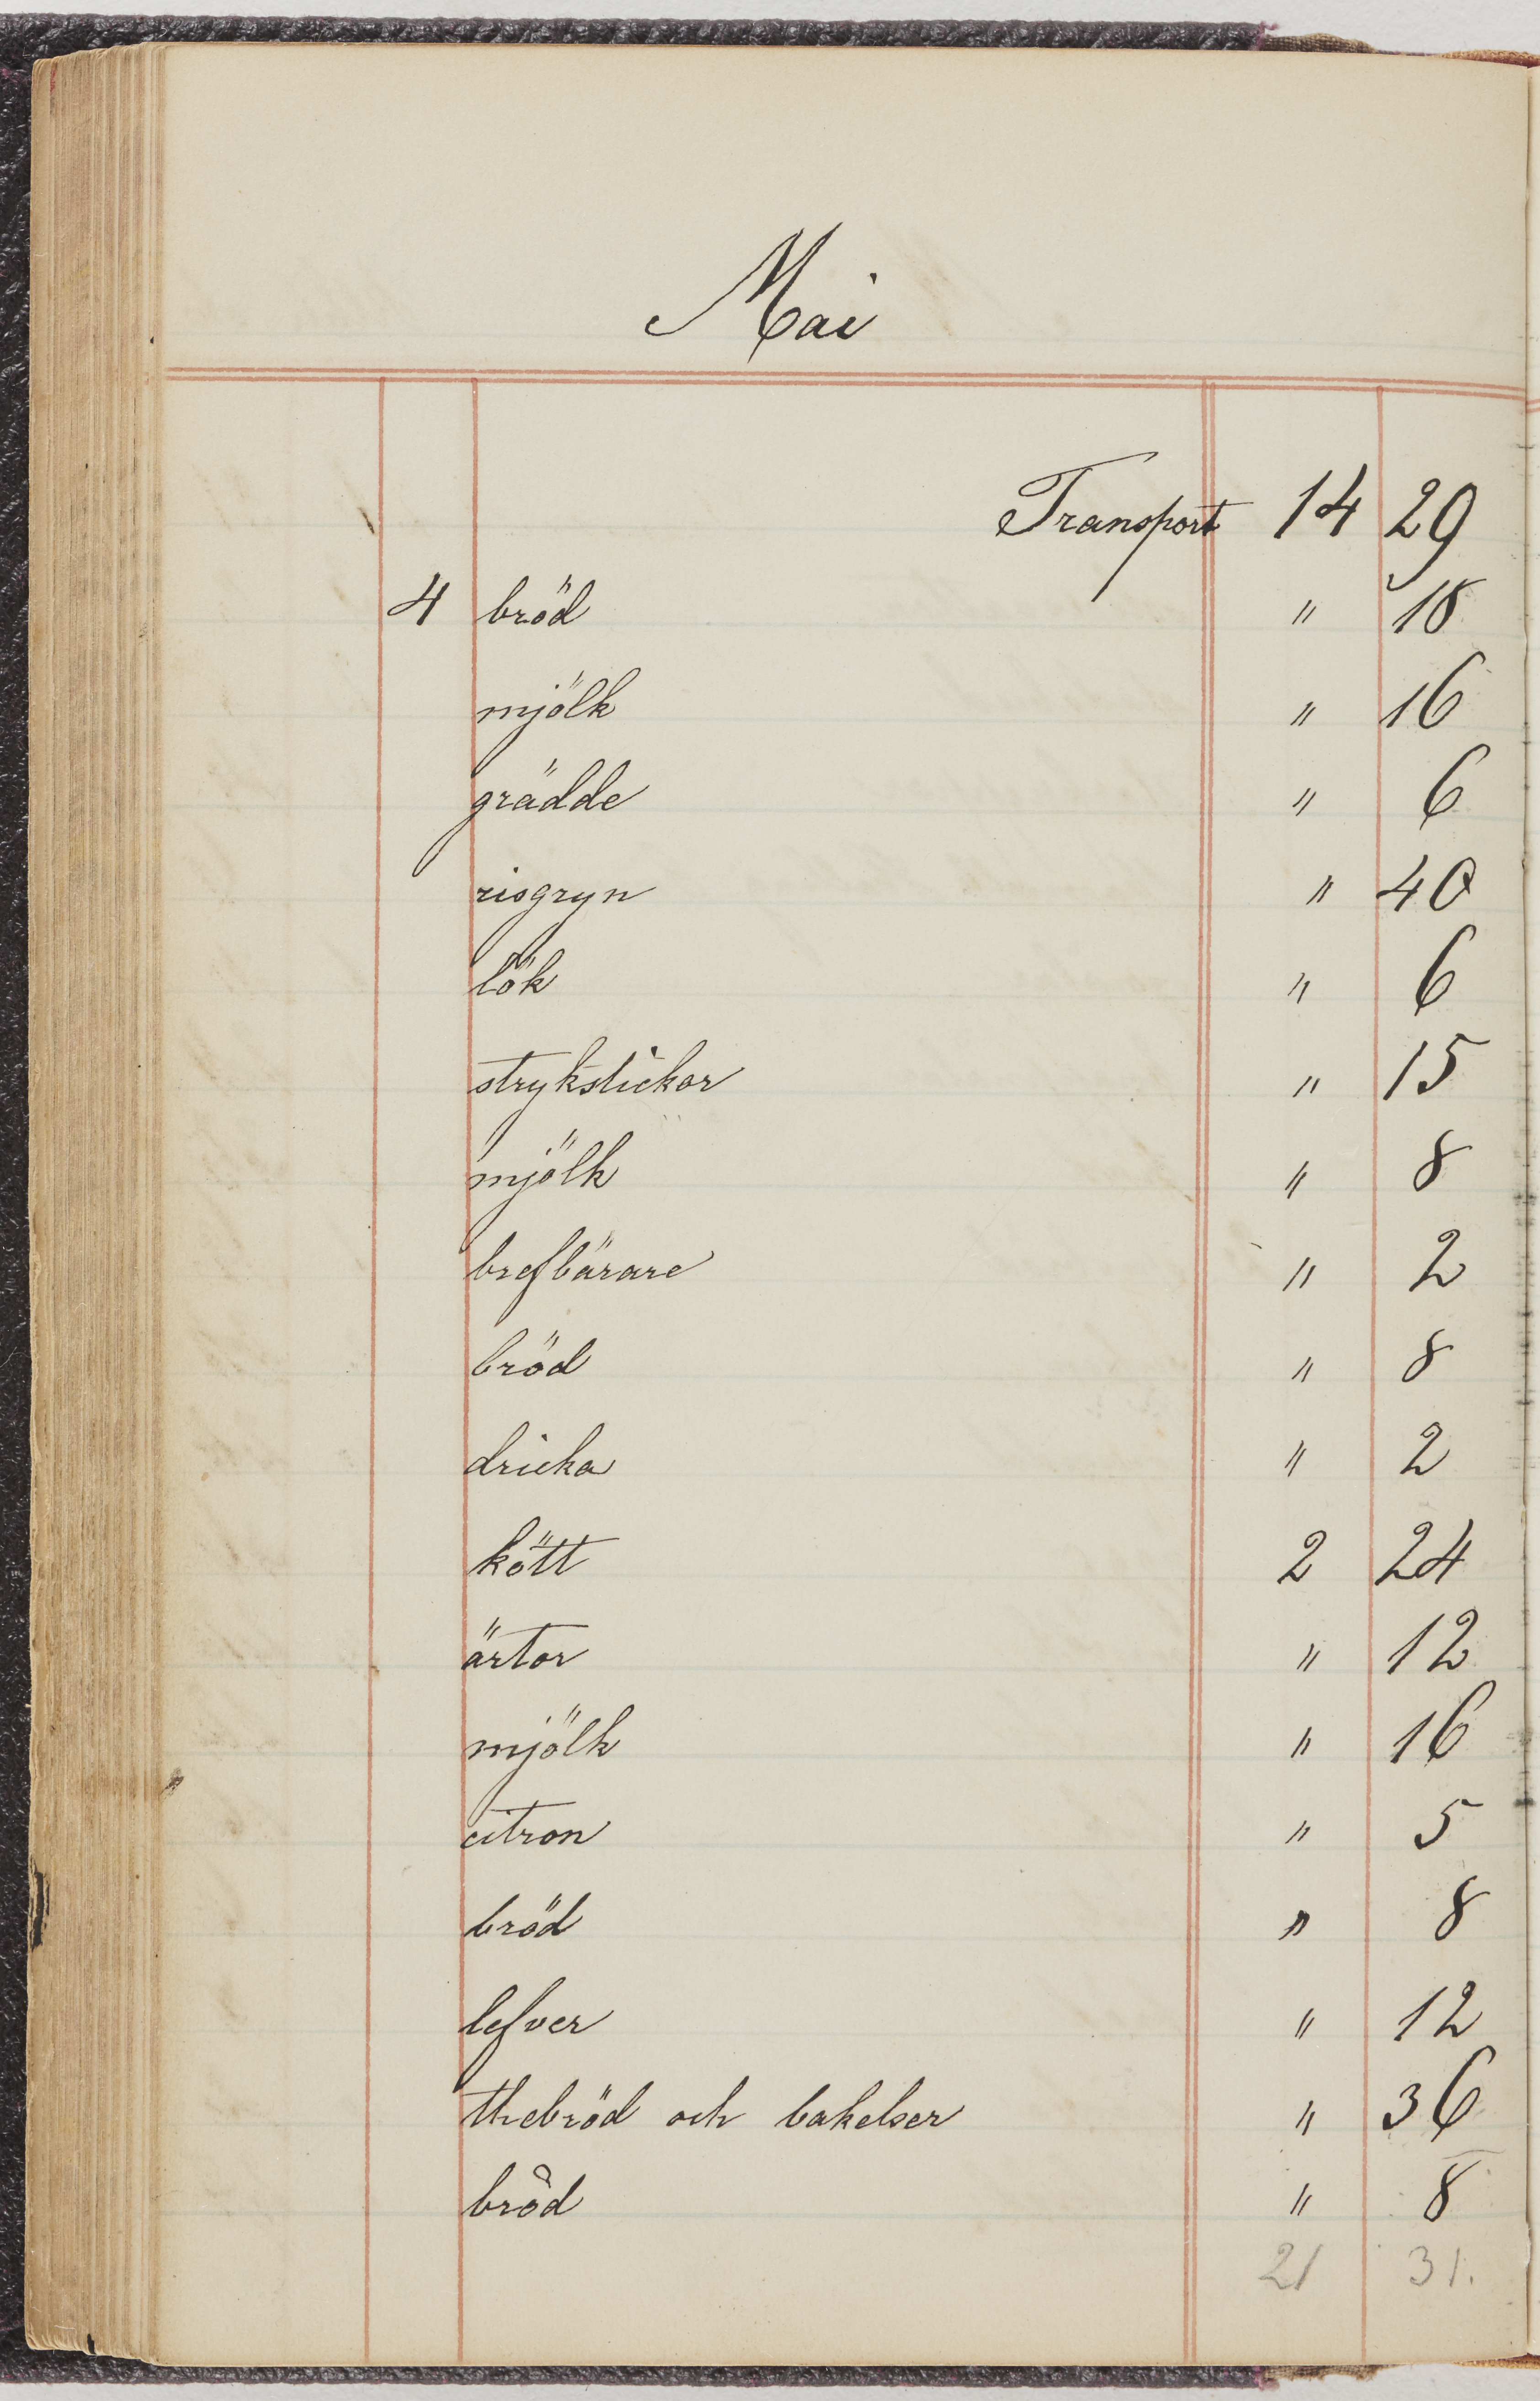 Mai
Transport 14 29
4 bröd " 18
mjölk " 16
grädde " 6
risgryn " 40
lök " 6
strykstickor " 15
mjölk " 8
brefbärare " 2
bröd " 8
dricka " 2
kött 2 24
ärtor " 12
mjölk " 16
citron " 5
bröd " 8
lefver " 12
thebröd och bakelser " 36
bröd " 8
21 31.